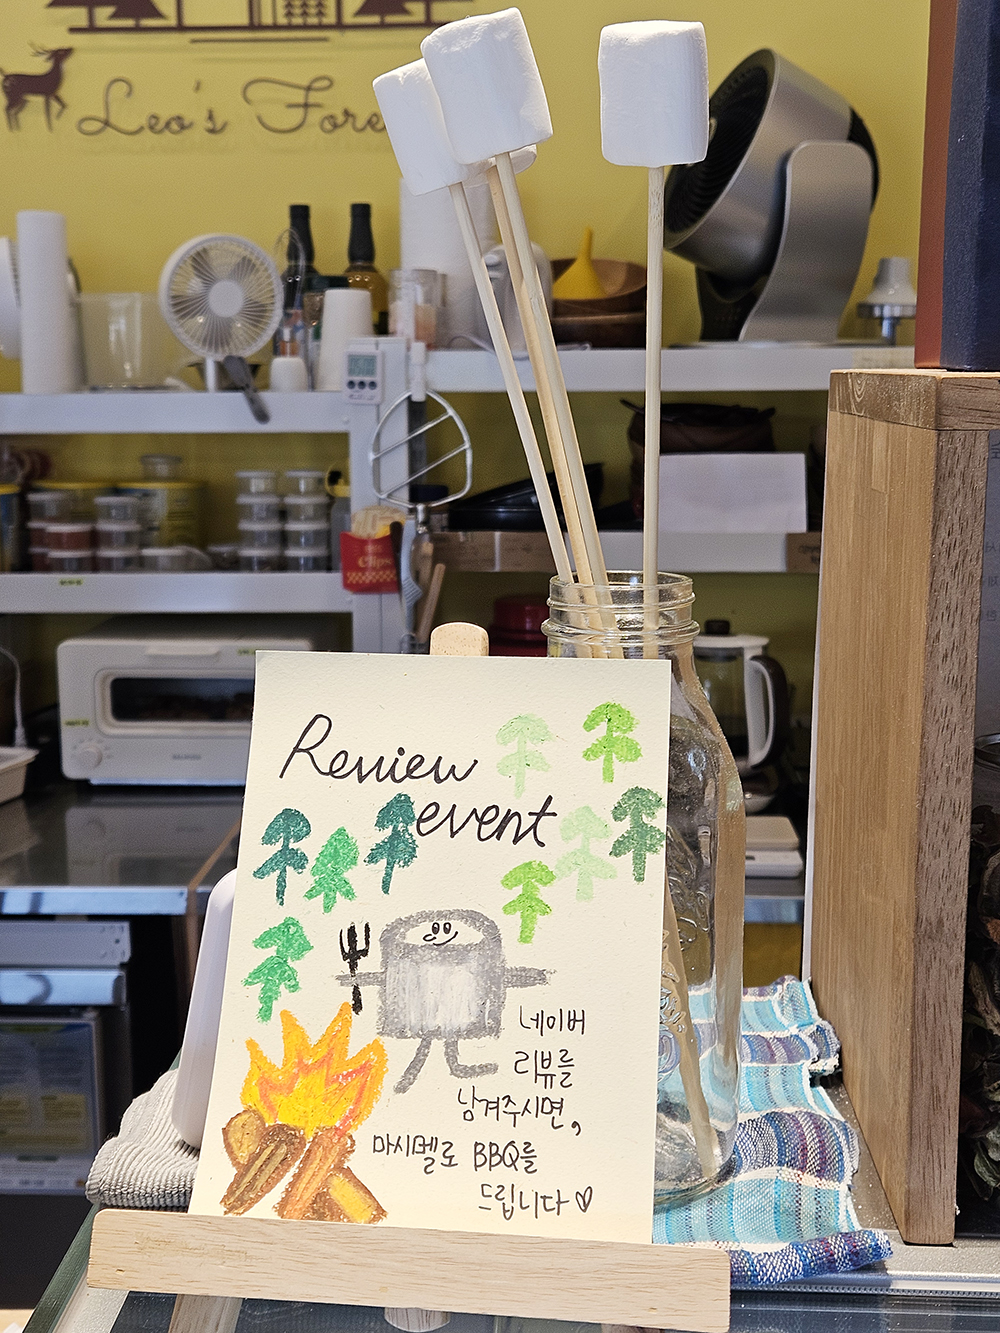 Leo's Fore
Clips
Review
event
네이버
리뷰를
남겨주시면,
마시멜로 BBQ를
드립니다♡